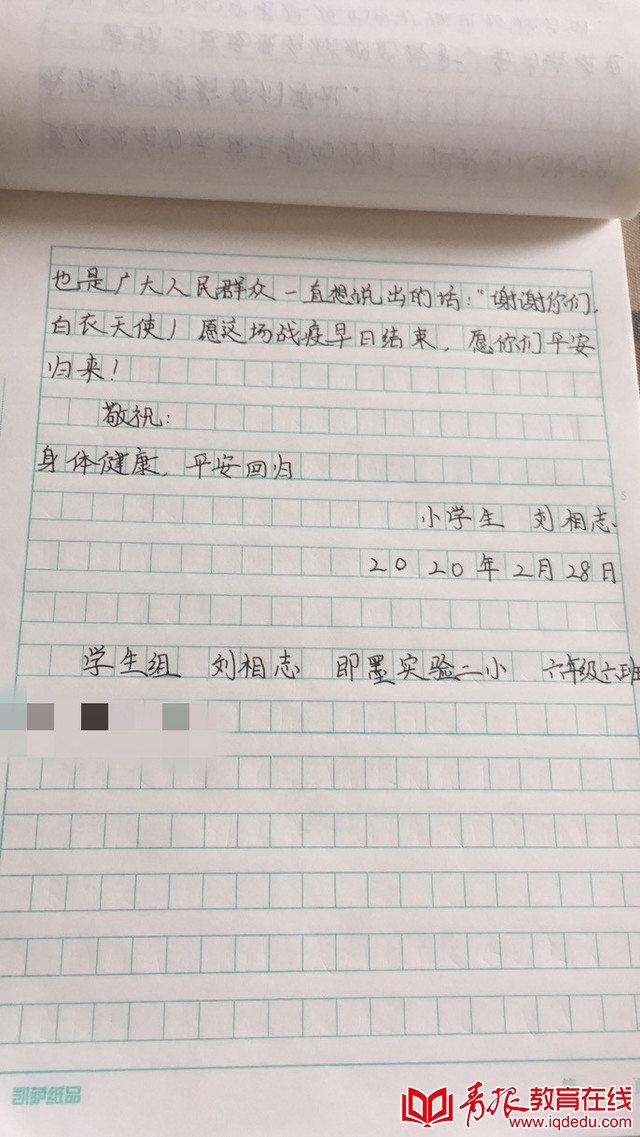 也是广大人民群众一直想说出的话:"谢谢你们,
白衣天使!愿这场战疫早日结束,愿你们平安
归来!
敬祝:
身体健康,平安回归
小学生 刘相志
2020年2月28日
学生组 刘相志 即墨实验二小 六年级六班
凯萨纸品
青报教育在线
www.iqdedu.com